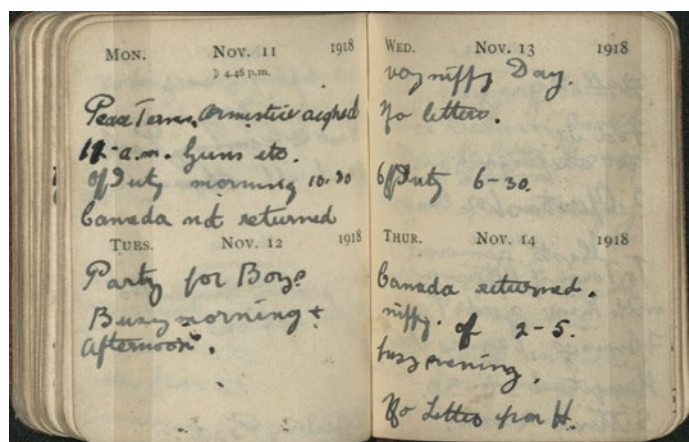 MON. NOV. 11 1918
☽ 4.46 p.m.
Peace Terms, Armistice signed
11-a.m. Guns etc.
off Duty morning 10.30
Canada not returned
TUES. NOV. 12 1918
Party for Boys
Busy morning +
afternoon.
WED. NOV. 13 1918
very niffy Day.
No letters.
off Duty 6-30.
THUR. NOV. 14 1918
Canada returned.
niffy. off 2-5.
busy evening.
No Letter from H.